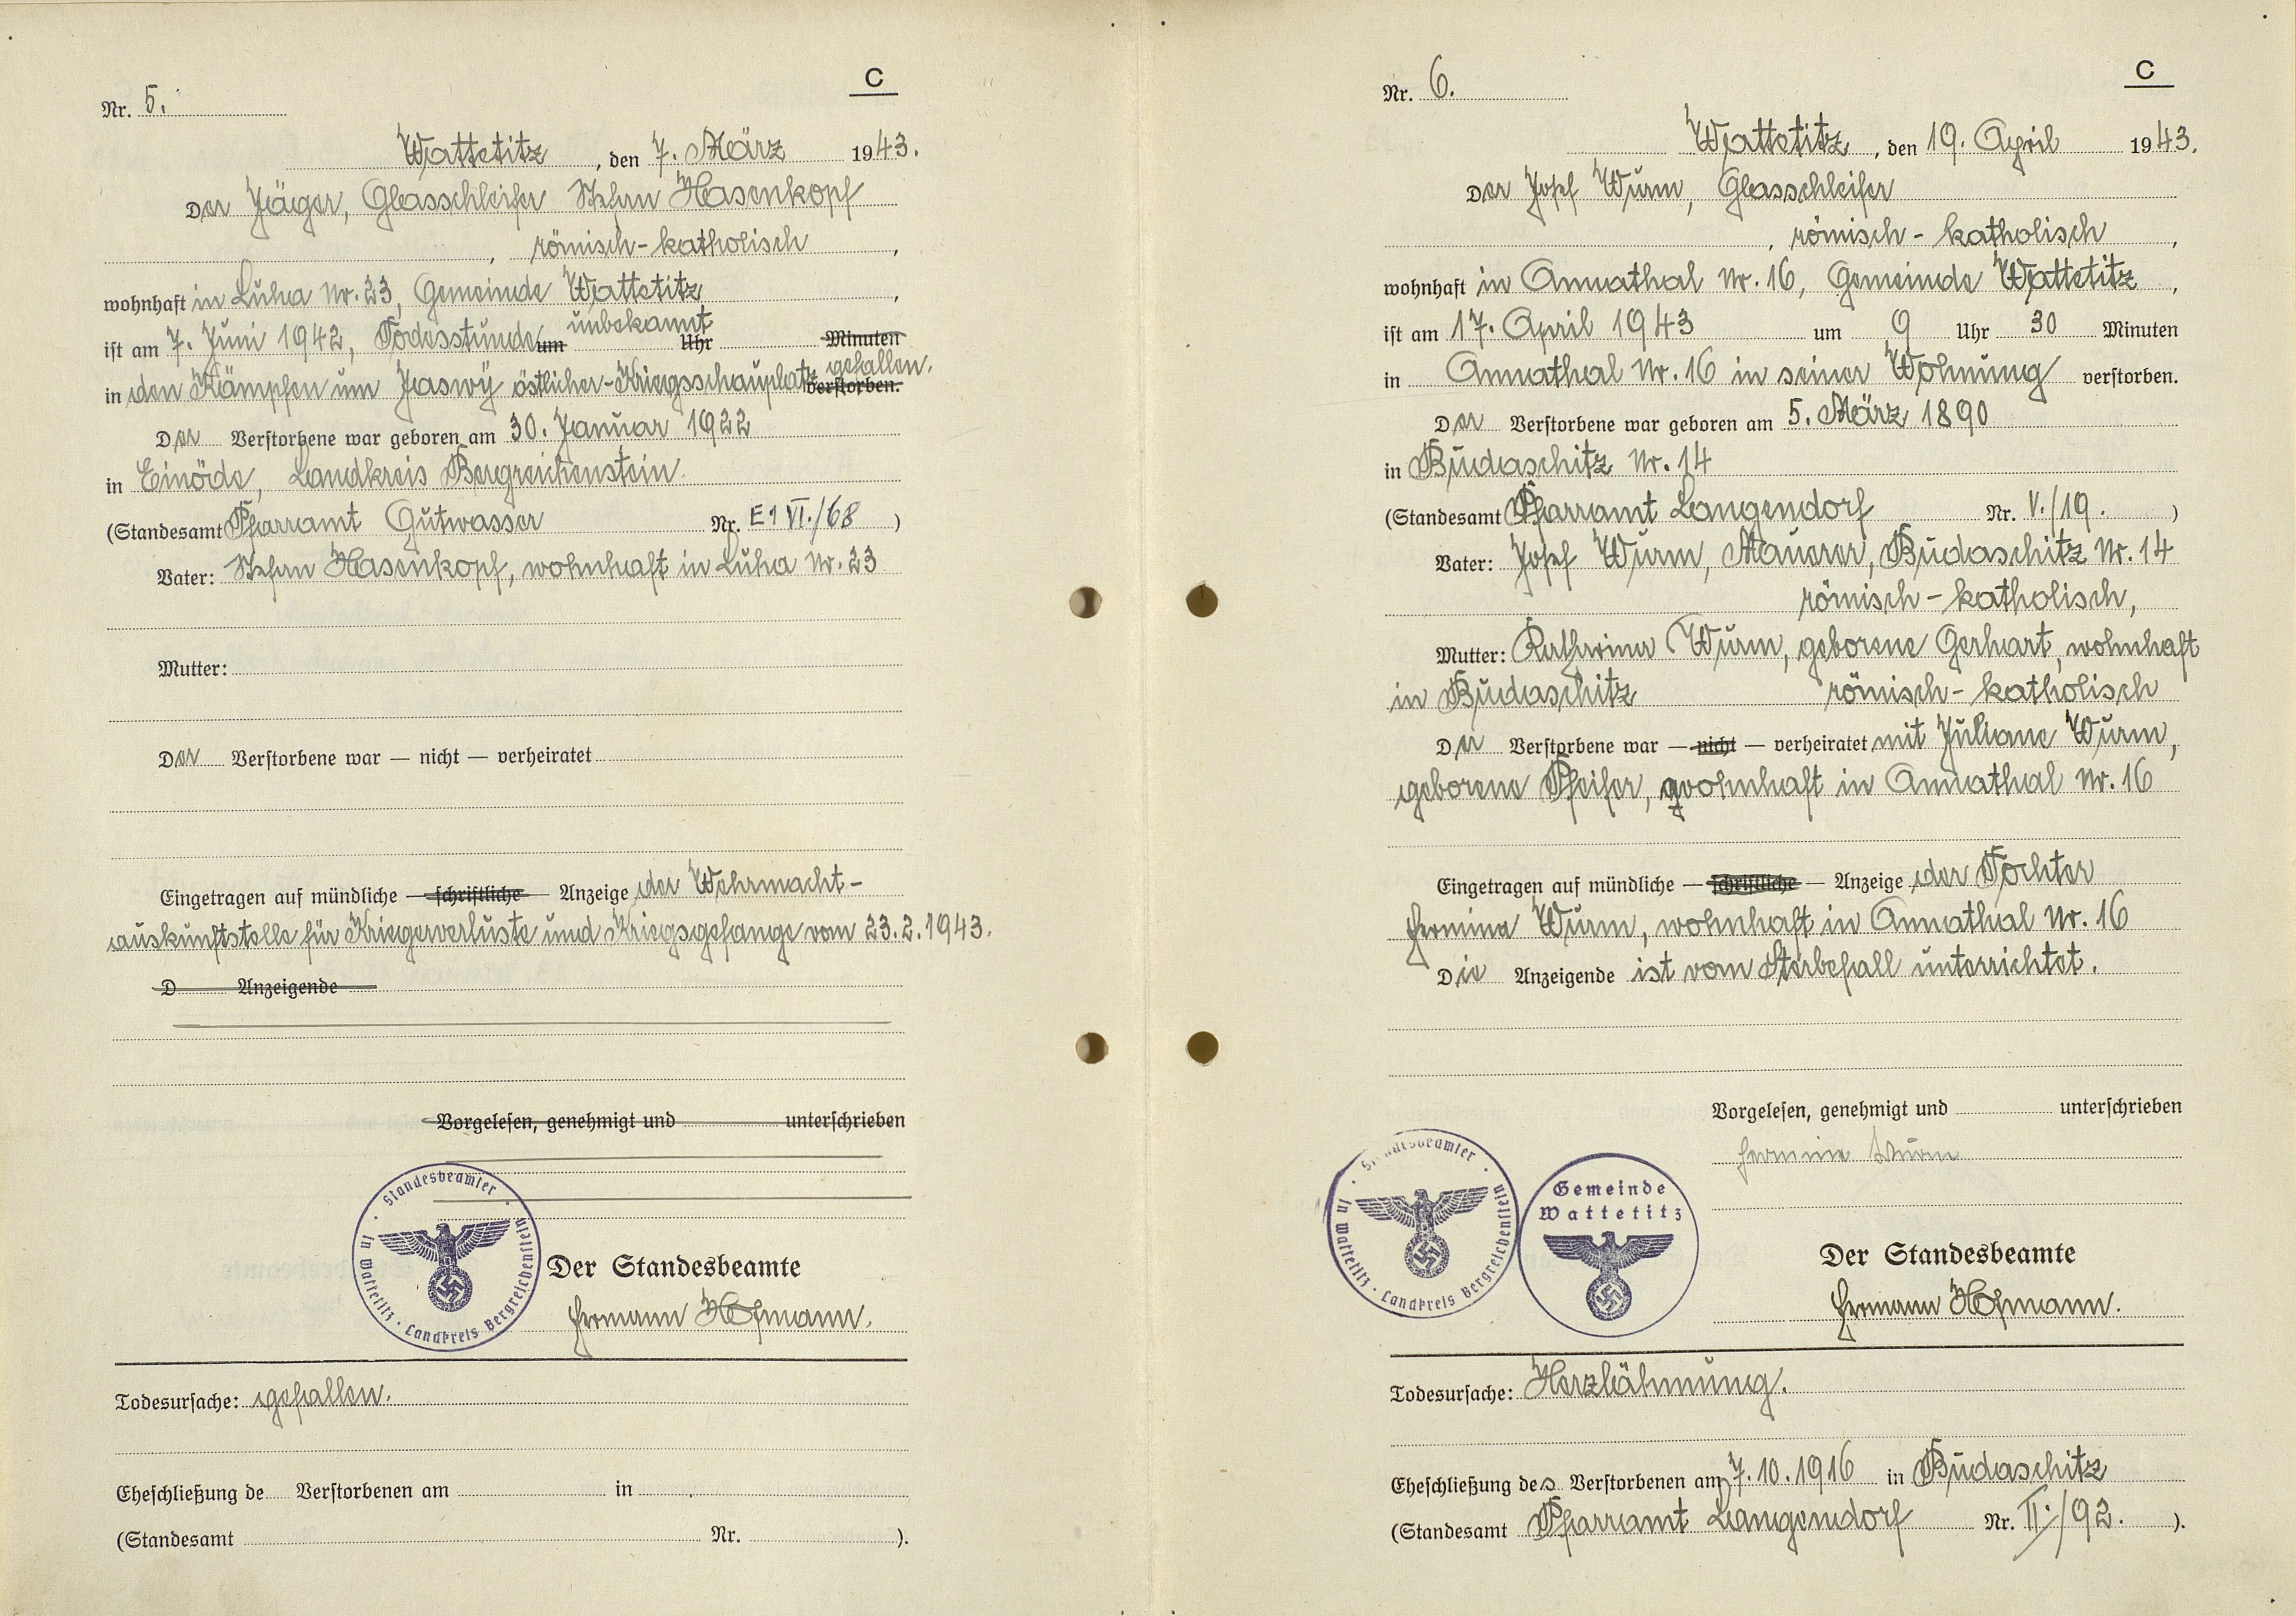 C
Nr. 5.
Wattetitz, den 7. März 1943.
Der Jäger, Glasschleifer Stefan Hasenkopf
, römisch-katholisch,
wohnhaft in Luha Nr. 23, Gemeinde Wattetitz,
ist am 7. Juni 1942, Todesstunde um unbekannt Uhr Minuten
in den Kämpfen um Jaswy östlicher-Kriegsschauplatz gefallen. verstorben.
Der Verstorbene war geboren am 30. Januar 1922
in Einöde, Landkreis Bergreichenstein
(Standesamt Pfarramt Gutwasser Nr. E1 VI./68)
Vater: Stefan Hasenkopf, wohnhaft in Luha Nr. 23
Mutter:
Der Verstorbene war — nicht — verheiratet
Eingetragen auf mündliche — schriftliche — Anzeige der Wehrmacht-
auskunftstelle für Kriegerverluste und Kriegsgefange vom 23.2.1943.
D Anzeigende
Vorgelesen, genehmigt und unterschrieben
Standesbeamter · In Wattetitz · Landkreis Bergreichenstein
Der Standesbeamte
Hermann Hofmann.
Todesursache: gefallen.
Eheschließung de Verstorbenen am in
(Standesamt Nr. ).
C
Nr. 6.
Wattetitz, den 19. April 1943.
Der Josef Wurm, Glasschleifer
, römisch-katholisch,
wohnhaft in Annathal Nr. 16, Gemeinde Wattetitz,
ist am 17. April 1943 um 9 Uhr 30 Minuten
in Annathal Nr. 16 in seiner Wohnung verstorben.
Der Verstorbene war geboren am 5. März 1890
in Budaschitz Nr. 14
(Standesamt Pfarramt Langendorf Nr. V./19.)
Vater: Josef Wurm, Maurer, Budaschitz Nr. 14
römisch-katholisch,
Mutter: Katharina Wurm, geborene Gerhart, wohnhaft
in Budaschitz römisch-katholisch
Der Verstorbene war — nicht — verheiratet mit Juliane Wurm,
geborene Pfeifer, wohnhaft in Annathal Nr. 16
Eingetragen auf mündliche — schriftliche — Anzeige der Tochter
Hermina Wurm, wohnhaft in Annathal Nr. 16
Die Anzeigende ist vom Sterbefall unterrichtet.
Vorgelesen, genehmigt und unterschrieben
Hermine Wurm
Standesbeamter · In Wattetitz · Landkreis Bergreichenstein
Gemeinde
Wattetitz
Der Standesbeamte
Hermann Hofmann.
Todesursache: Herzlähmung.
Eheschließung des Verstorbenen am 7.10.1916 in Budaschitz
(Standesamt Pfarramt Langendorf Nr. II./92. ).